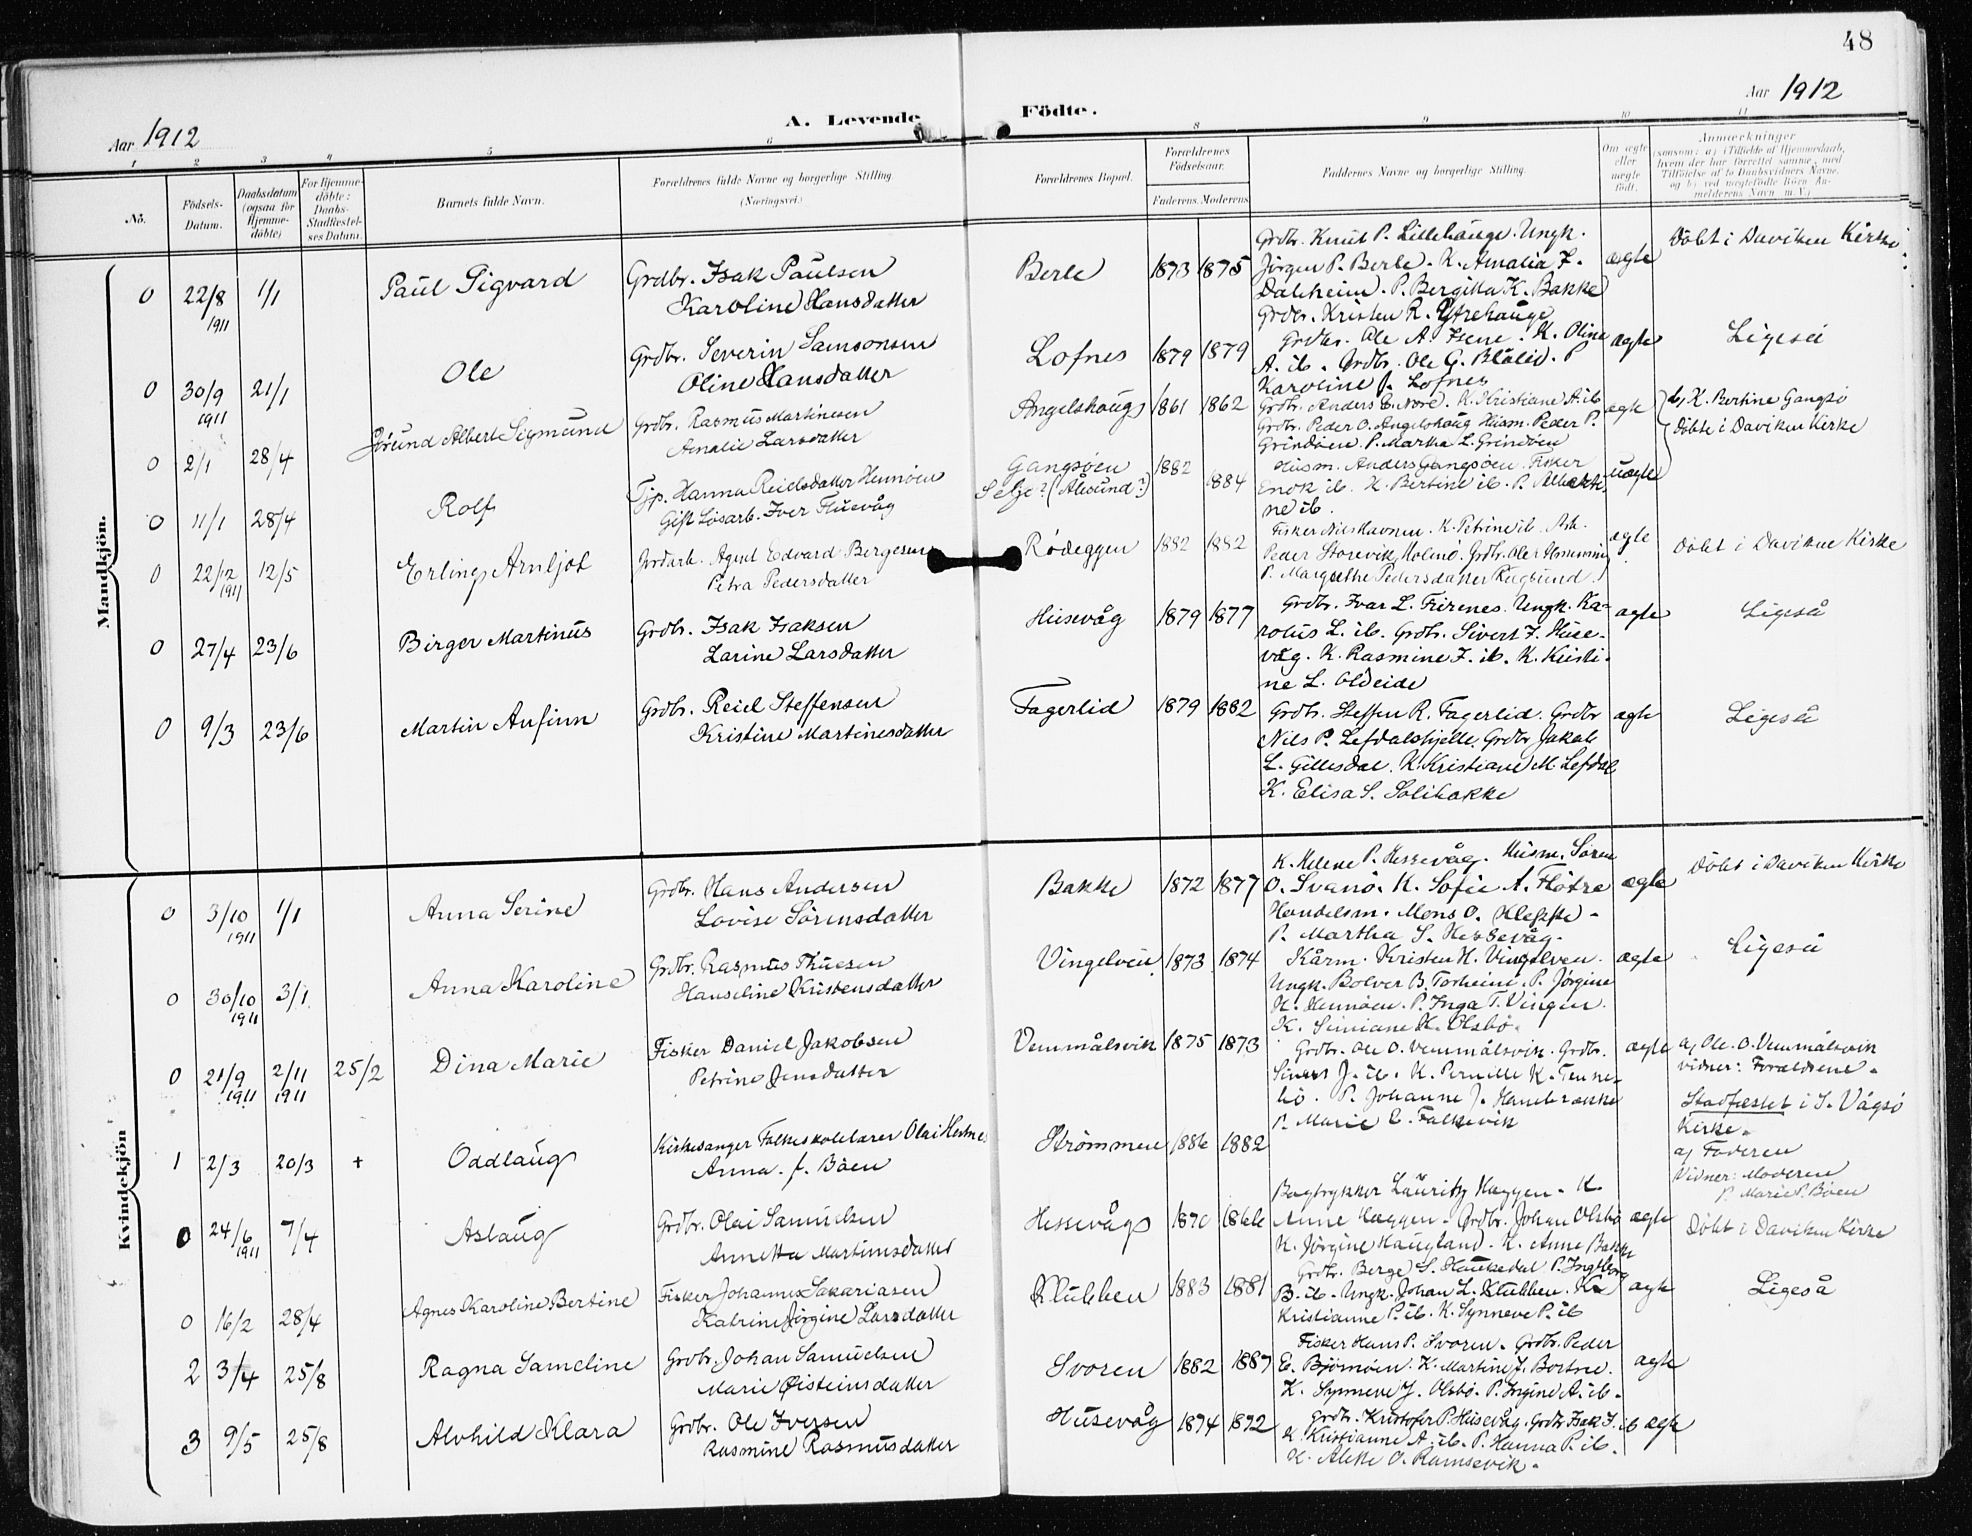 48
Aar 1912
A. Levende Födte.
Aar 1912
1 2 3 4 5 6 8 9 10 11
No.
Födsels-Datum.
Daabsdatum (ogsaa for Hjemme-döbte)
For Hjemme-döbte: Daabs-Stadfæstel-ses Datum.
Barnets fulde Navn.
Forældrenes fulde Navne og borgerlige Stilling.
(Næringsvei.)
Forældrenes Bopæl.
Forældrenes Födselsaar.
Faderens. Moderens.
Faddernes Navne og borgerlige Stilling.
Om ægte eller uægte födt.
Anmærkninger
(saasom: a) i Tilfælde af Hjemmedaab,
hvem der har forrettet samme, med
Tilföielse af to Daabsvidners Navne,
og b) ved uægtefödte Börn An-
melderens Navn m. V.)
Mandkjön.
0 22/8 1911 1/1 Paul Sigvard
Grdbr. Isak Paulsen
Karoline Hansdatter
Berle 1873 1875
Grdbr. Knut P. Lillehauge. Ungk.
Jörgen P. Berle. K. Amalia I.
Dalsheim. P. Bergitta K. Bakke
Grdbr. Kristen R. Ytrehauge
ægte
Döbt i Daviken Kirke
0 30/9 1911 21/1 Ole
Grdbr. Severin Samsonsen
Oline Hansdatter
Lofnes 1879 1879
Grdbr. Ole A. Isene. K. Oline
A. ib. Grdbr. Ole G. Blålid. P.
Karoline J. Lofnes
ægte
Ligeså
0 2/1 28/4 Jörund Albert Sigmund
Grdbr. Rasmus Martinesen
Amalie Larsdatter
Angelshaug 1861 1862
Grdbr. Anders E. Nore. K. Kristiane A. ib
Grdbr. Peder O. Angelshaug Husm. Peder P.
Grindöen. P. Martha L. Grindöen
ægte
b) K. Bertine Gangsö
Döbte i Daviken Kirke
0 11/1 28/4 Rolf
Tjp. Hanna Reielsdatter Hennöen
Gift Lösarb. Iver Husevåg
Gangsöen
Selje? (Ålesund?)
1882 1884
Husm. Anders Gangsöen. Fisker
Enok ib. K. Bertine ib. P.
ne ib.
uægte
0 22/12 1911 12/5 Erling Arnljot
Jordarb. Agent Edvard Bergesen
Petra Pedersdatter
Rödeggen 1882 1882
Fisker Nils Havnen. K. Petrine ib. Arb.
Peder Storevik, Holmö. Grdbr. Ole
P. Margrethe Pedersdatter Rugsund.
ægte
Döbt i Daviken Kirke
0 27/4 23/6 Birger Martinus
Grdbr. Isak Isaksen
Larine Larsdatter
Husevåg 1879 1877
Grdbr. Ivar L. Tirenes. Ungk. Ka-
rolus L. ib. Grdbr. Sivert I. Huse-
våg. K. Rasmine I. ib. K. Kristi-
ne L. Oldeide
ægte
Ligeså
0 9/3 23/6 Martin Anfinn
Grdbr. Reiel Steffensen
Kristine Martinesdatter
Fagerlid 1879 1882
Grdbr. Steffen R. Fagerlid. Grdbr
Nils P. Lefdalshjelle. Grdbr Jakob
L. Gillesdal. K. Kristiane M. Lefdal
K. Elisa S. Solibakke
ægte
Ligeså
Kvindekjön
0 3/10 1911 1/1 Anna Serine
Grdbr. Hans Andersen
Lovise Sörensdatter
Bakke 1872 1877
K. Helene P. Hessevåg. Husm. Sören
O. Svanö. K. Sofie A. Flötre
Handelsm. Mons O. Kleppe.
P. Martha S. Hessevåg.
ægte
Döbt i Daviken Kirke
0 30/10 1911 3/1 Anna Karoline
Grdbr. Rasmus Thuesen
Hanseline Kristensdatter
Vingelven 1873 1874
Kårm. Kristen H. Vingelven.
Ungk. Bolver B. Torheim. P. Jörgine
H. Hennöen. P. Inga T. Vingen.
K. Simiane K. Olsbö.
ægte
Ligeså
0 21/9 1911 2/11 1911 25/2 Dina Marie
Fisker Daniel Jakobsen
Petrine Jensdatter
Vemmålsvik 1875 1873
Grdbr. Ole O. Vemmålsvik. Grdbr.
Sivert J. ib. K. Pernille K. Tenne-
bö. P. Johanne J. Hambrække
P. Marie E. Falkevik
ægte
a) Ole O. Vemmålsvik
vidner: Forældrene.
Stadfæstet i S. Vågsö
Kirke.
1 2/3 20/3 + Oddlaug
Kirkesanger Folkeskolelærer Olai
Anna J. Böen
Strömmen 1886 1882
a) Faderen
Vidner: Moderen
P. Marie P. Böen
0 24/6 1911 7/4 Aslaug
Grdbr. Olai Samuelsen
Annetta Martinusdatter
Hessevåg 1870 1866
Bogtrykker Lauritz Haggen. K.
Anne Haggen. Grdbr. Johan Olsbö
K. Jörgine Haugland. K. Anne Bakke
ægte
Döbt i Daviken Kirke
0 16/2 28/4 Agnes Karoline Bertine
Fisker Johannes Sakariasen
Katrine Jörgine Larsdatter
Klubben 1883 1881
Grdbr. Berge S. Haukedal P. Ingeborg
B. ib. Ungk. Johan L. Klubben. K.
Kristianne P. ib. K. Synneve P. ib
ægte
Ligeså
2 3/4 25/8 Ragna Sameline
Grdbr. Johan Samuelsen
Marie Øisteinsdatter
Svoren 1882 1887
Fisker Hans P. Svoren. Grdbr. Peder
E. Björnöen. K. Martine J. Bortne.
K. Synneve J. Olsbö. P. Ingine A. ib.
ægte
3 9/5 25/8 Alvhild Klara
Grdbr. Ole Iversen
Rasmine Rasmusdatter
Husevåg 1874 1872
Grdbr. Kristofer P. Husevåg. Grdbr. Isak I. ib
K. Kristianne A. ib. P. Hanna P. ib.
K. Alette O. Ramsevik.
ægte